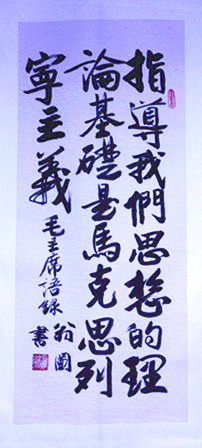 指導我們思想的理
論基礎是馬克思列
寧主義
毛主席語録
翁圖
書